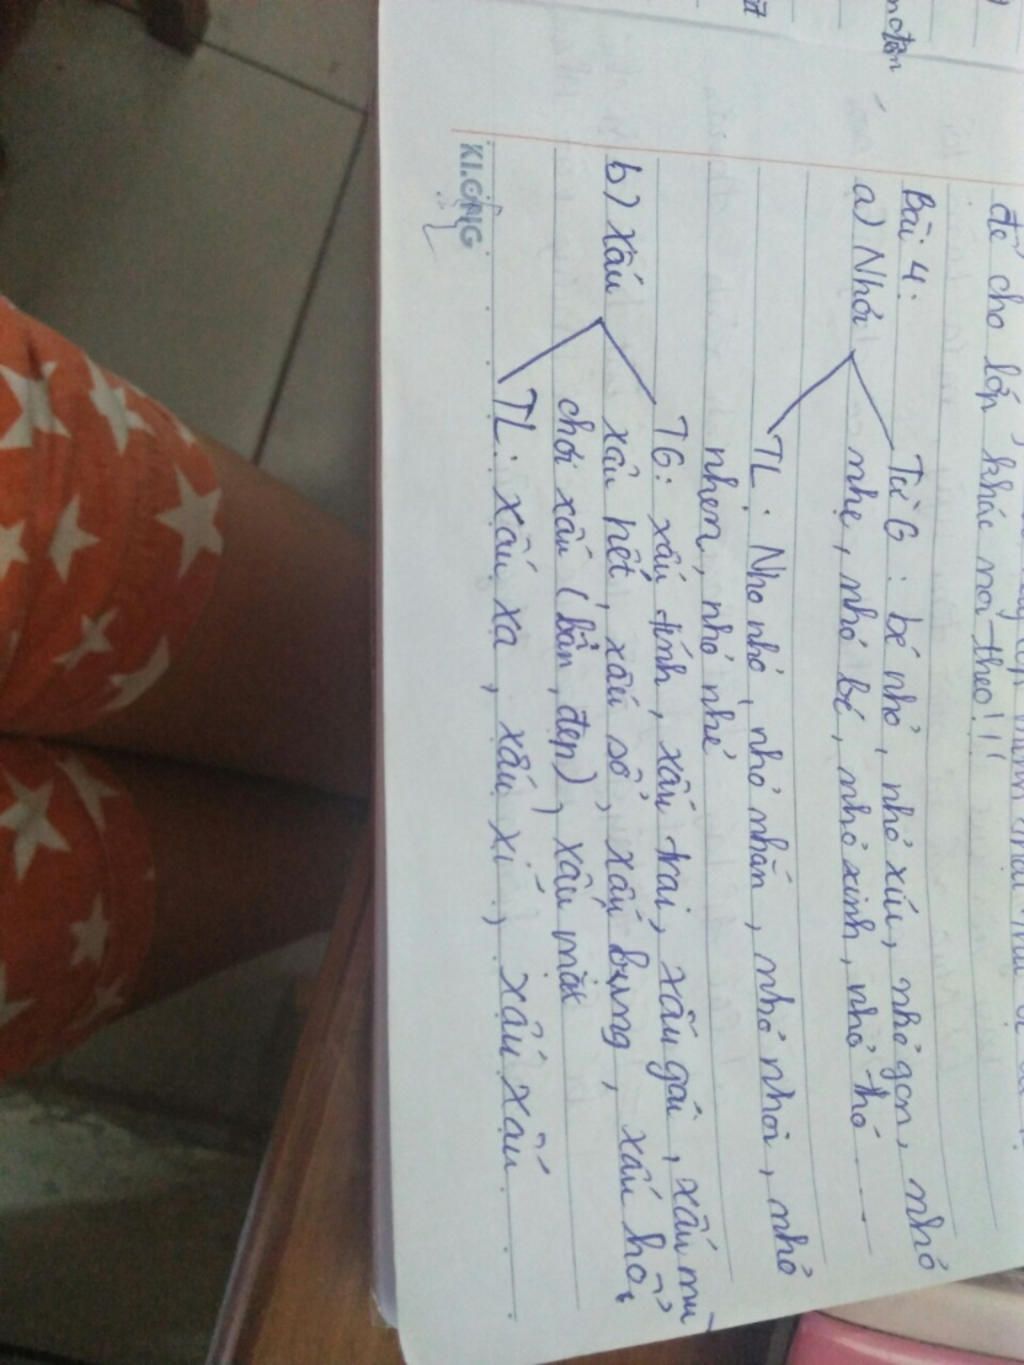 để cho lớp khác noi theo!!!
Bài 4:
a) Nhỏ
Từ G: bé nhỏ, nhỏ xíu, nhỏ gọn, nhỏ
nhẹ, nhỏ bé, nhỏ xinh, nhỏ thó
TL: Nho nhỏ, nhỏ nhắn, nhỏ nhoi, nhỏ
nhen, nhỏ nhẻ
b) Xấu
TG: xấu tính, xấu trai, xấu gái, xấu mù
xấu hết, xấu số, xấu bụng, xấu hổ,
chơi xấu (bẩn, đẹp), xấu mặt
TL: xấu xa, xấu xí, xấu xấu
KLONG